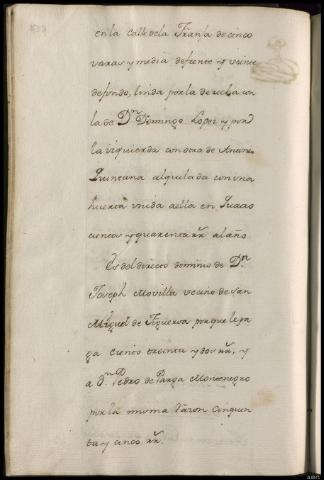 en la Calle de la Franja de cinco
varas y media de frente y veinte
de fondo, linda por la derecha con
la de Dn Domingo Lopez y por
la izquierda con otra de Anton
Quintana alquilada con una
huerta unida a ella en
cientos y quarenta rs al año
Es del directo dominio de Dn
Joseph Movilla vecino de San
Miguel de Figueroa porque le pa
ga ciento treinta y dos rs, y
a Dn Pedro de Parga Montenegro
por la misma razon cinquen
ta y cinco rs.